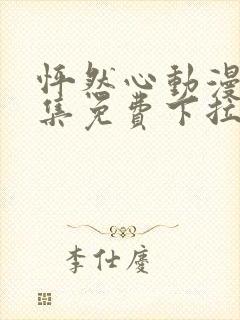 怦然心動漫
集免費下拉
李仕慶